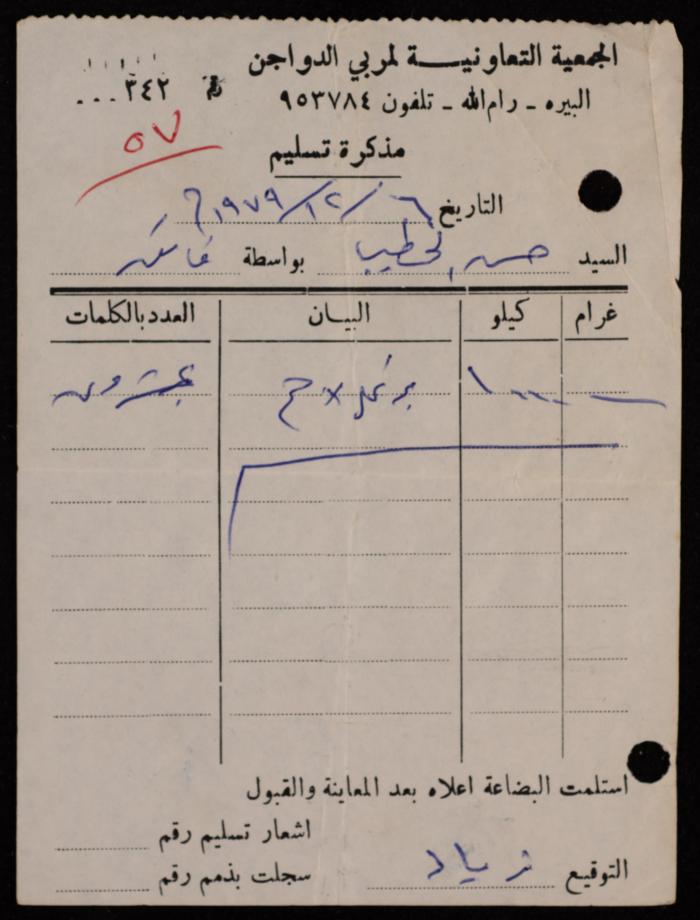 الجمعية التعاونيـــة لمربي الدواجن
رقم ٣٤٢...
البيره - رام الله - تلفون ٩٥٣٧٨٤
٥٧
مذكرة تسليم
التاريخ ٦/١٢/١٩٧٩م
السيد حسن الخطيب بواسطة
غرام كيلو البيـــان العدد بالكلمات
١٠٠٠ لاحم عشرون
استلمت البضاعة اعلاه بعد المعاينة والقبول
اشعار تسليم رقم
التوقيع زياد
سجلت بذمم رقم